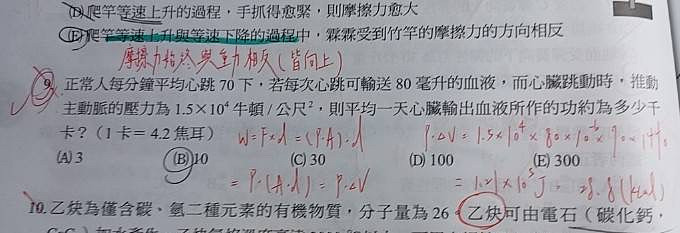 (D)爬竿等速上升的過程，手抓得愈緊，則摩擦力愈大
(E)爬竿等速上升與等速下降的過程中，霖霖受到竹竿的摩擦力的方向相反
摩擦力始終與重力相反(皆向上)
9. 正常人每分鐘平均心跳 70 下，若每次心跳可輸送 80 毫升的血液，而心臟跳動時，推動
主動脈的壓力為 1.5×10⁴ 牛頓/公尺²，則平均一天心臟輸出血液所作的功約為多少千
卡？(1 卡= 4.2 焦耳)
W=F×d=(P·A)·d
P·ΔV=1.5×10⁴×80×10⁻⁶×70×1440
(A) 3 (B) 10 (C) 30 (D) 100 (E) 300
=P·(A·d)=P·ΔV
=1.21×10⁵J=28.8(kcal)
10. 乙炔為僅含碳、氫二種元素的有機物質，分子量為 26。乙炔可由電石(碳化鈣，